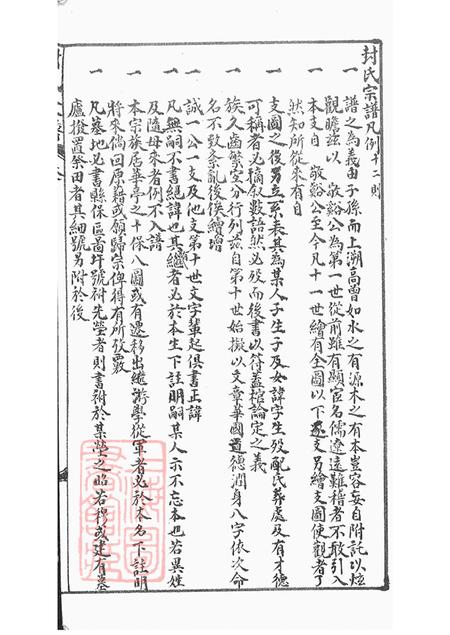 封氏宗譜凡例十二則
一 譜之為義由子孫而上溯高曾如水之有源木之有本豈容妄自附託以炫
觀瞻茲以 敬谿公為第一世從前雖有顯宦名儒遼遠難稽者不敢引入
一 本支自 敬谿公至今凡十一世繪有全圖以下逐支另繪支圖使觀者了
然知所從來有自
一 支圖之後另立系表其為某人子生子及女諱字生殁配氏葬處及有才德
可稱者必摘敘數語然必殁而後書以符蓋棺論定之義
一 族久齒繁宜分行列茲自第十世始擬以文章華國道德潤身八字依次命
名不致紊亂後俟續增
一 誠一公一支及他支第十世文字輩起俱書正諱
一 凡無嗣不書繼諱也其繼者必於本生下註明嗣某人示不忘本也若異姓
及隨母來者例不入譜
一 本宗族居華亭之十保八圖或有遷移出繼游學從軍者必於本名下註明
將來倘回原籍或願歸宗俾得有所攷覈
一 凡墓地必書縣保區圖圩號祔先塋者則書祔於某塋之昭若穆或建有墓
廬擬置祭田者其細號另附於後